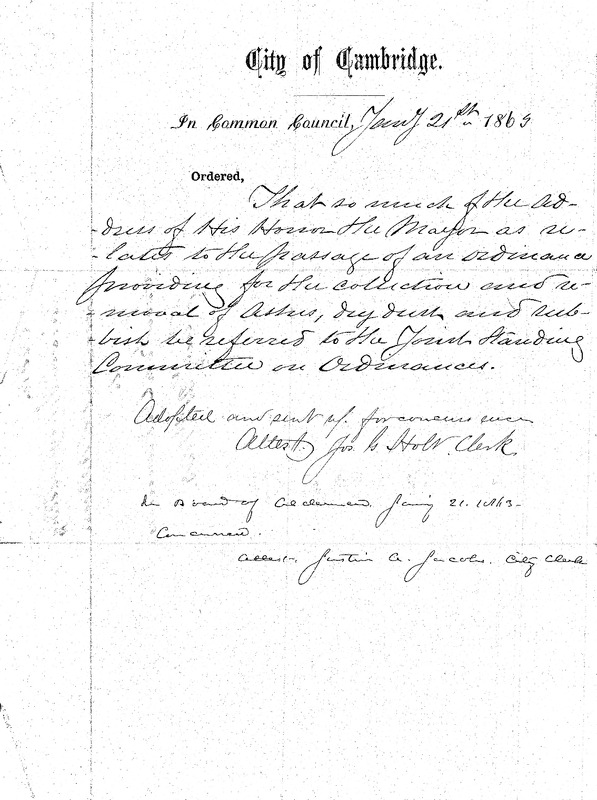 City of Cambridge.
In Common Council, Jany 21st 1863
Ordered,
That so much of the Ad-
-dress of His Honor the Mayor as re-
-lates to the passage of an ordinance
providing for the collection and re-
-moval of Ashes, dry dust and rub-
-bish be referred to the Joint Standing
Committee on Ordinances.
Adopted and sent up for concurrence
Attest. Jos. G. Holt. Clerk.
In Board of Aldermen. Jany 21. 1863.
Concurred.
Attest. Justin A. Jacobs. City Clerk